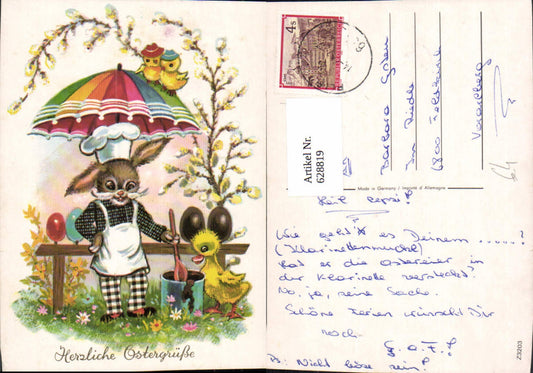 Herzliche Ostergrüße
4 S
Artikel Nr.
628819
Barbara
Im
6800 Feldkirch
Vorarlberg
Made in Germany / Importé d'Allemagne
Wie geht's es Deinem ......?
(Klarinettenmuckel)
Hat er die Ostereier in
der Klarinette versteckt?
Na ja, seine Sache.
Schöne Ferien wünscht Dir
noch
G. a. F.!
PS: Nicht böse sein!
Z3203